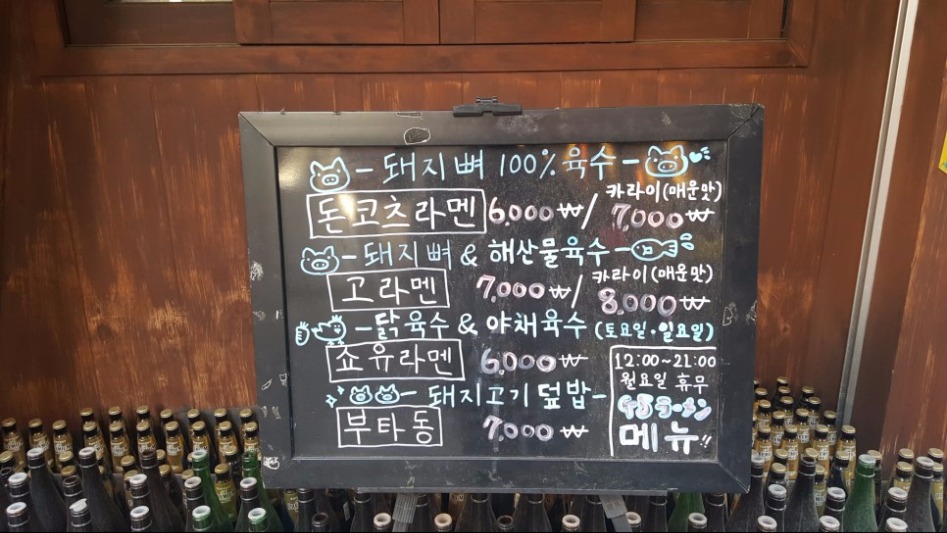 돼지뼈 100% 육수
카라이(매운맛)
돈코츠라멘 6,000₩/ 7,000₩
돼지뼈 & 해산물육수
카라이(매운맛)
고라멘 7,000₩/ 8,000₩
닭육수 & 야채육수 (토요일·일요일)
쇼유라멘 6,000₩
돼지고기 덮밥
부타동 7,000₩
12:00~21:00
월요일 휴무
ラーメン
메뉴!!